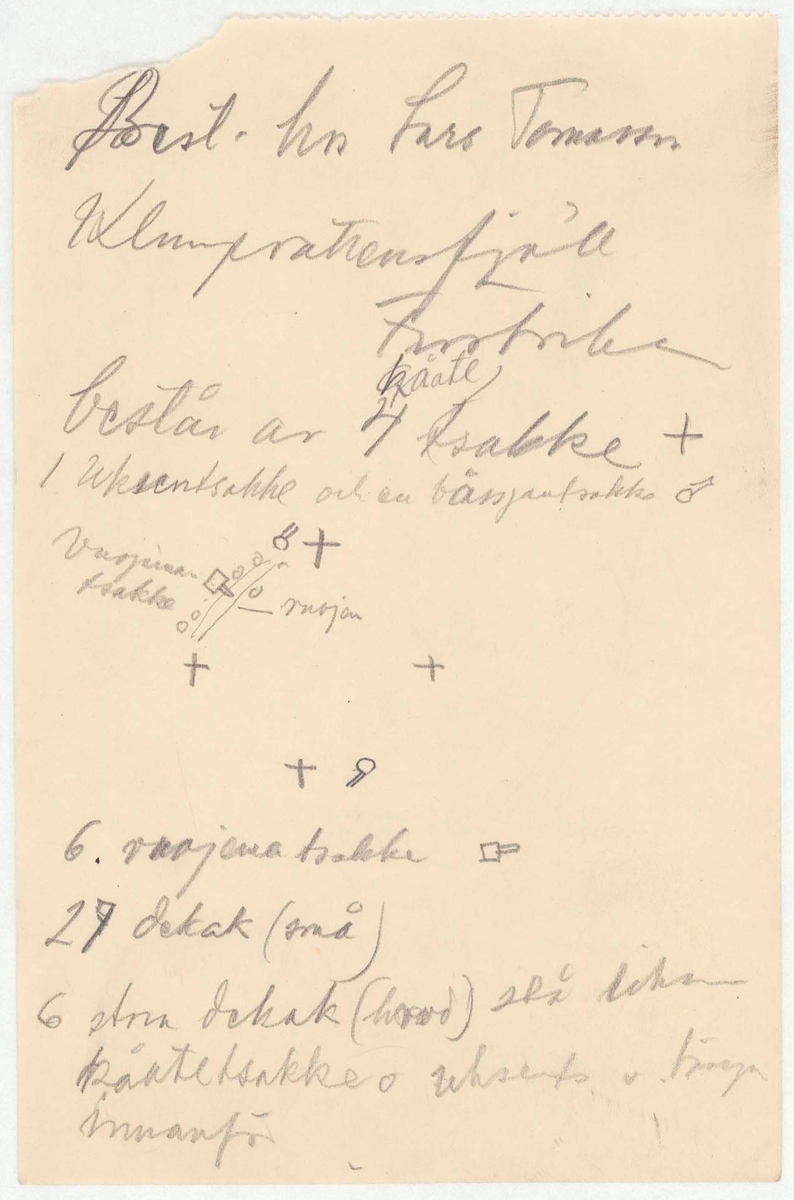 Best. hos Lars Tomasson
Klumpvattensfjäll
kåate
består av 4 tsakke +
1 uksentsakke och en båssjantsakke
Vuojena-
tsakke
vuojen
6. vuojena tsakke
27 dekak (små)
6 stora dekak (huvud) stå
kåatetsakke o uksents
innanför